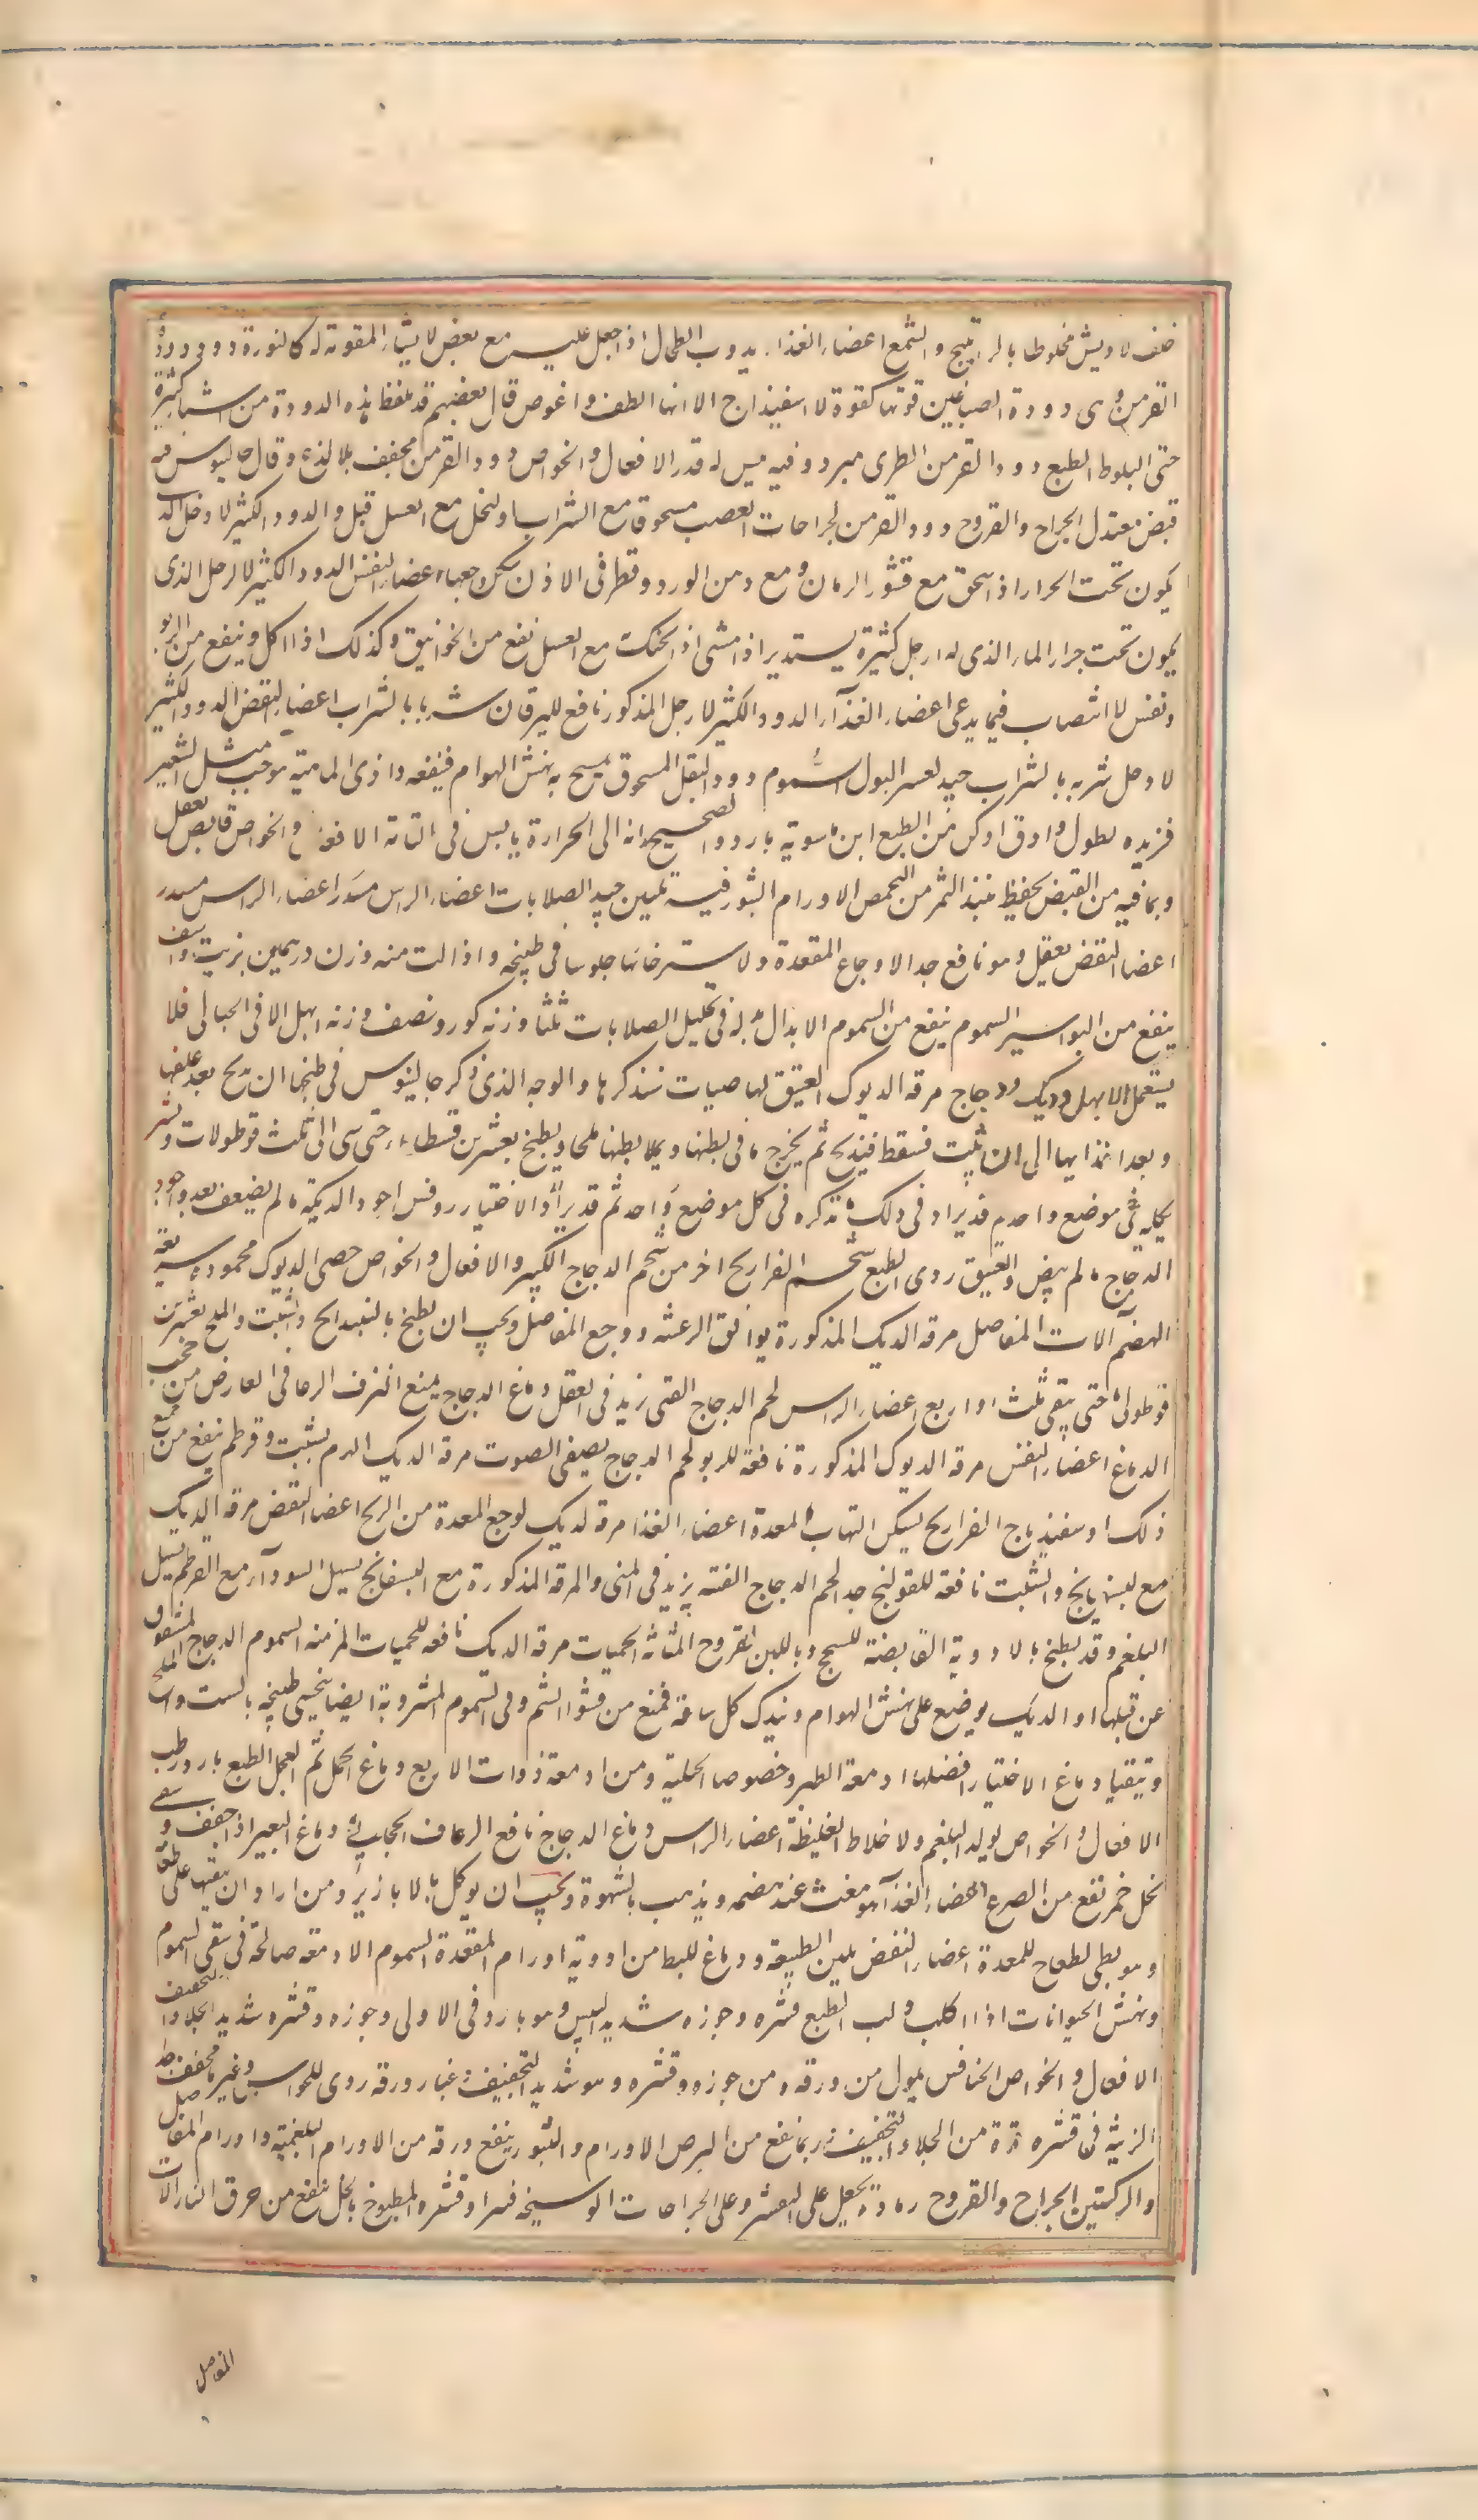 خفف لا ويش مخلوطا بالراتينج والشمع اعضاء الغذاء يذوب الطحال اذا جعل عليه مع بعض الاشياء المقوية له كالنورة دود دود
القرمز وهى دودة الصباغين قوتها كقوة الاسفيذاج الا انها الطف واغوص قال بعضهم قد تلفظ هذه الدودة من اشيا كثيرة
حتى البلوط الطبع دود القرمز الطرى مبرد وفيه يبس له قدر الافعال والخواص دود القرمز مجفف بلا لذع وقال جالينوس فيه
قبض معتدل الجراح والقروح دود القرمز لجراحات العصب مسحوقا مع الشراب او الخل مع العسل قيل والدود الكثير الارجل الذى
يكون تحت الجرار اذا سحق مع قشور الرمان ومع دهن الورد وقطر فى الاذن سكن وجعها اعضاء النفس الدود الكثير الارجل الذى
يكون تحت جرار الماء الذى له ارجل كثيرة يستدير اذا مشى اذا تحنك مع العسل نفع من الخوانيق وكذلك اذا اكل وينفع من الربو
ونفس الانتصاب فيما يدعى اعضاء الغذاء الدود الكثير الارجل المذكور نافع لليرقان شربا بالشراب اعضاء النفض الدود الكثير
الارجل شربه بالشراب جيد لعسر البول السموم دود البقل المسحوق يمسح به نهش الهوام فينفعه داذى الماهية هو حب مثل الشعير
فزيده لطول وادق ادكن مر الطبع ابن ماسويه بارد والصحيح انه الى الحرارة يابس فى الثانة الافعال والخواص قابض يعقل
وبما فيه من القبض يحفظ نبيذ التمر من التحمض الاورام والبثور فيه تليين جيد للصلابات اعضاء الراس مسدر اعضاء الراس مسدر
اعضا النفض يعقل وهو نافع جدا لاوجاع المقعدة ولاسترخائها جلوسا فى طبيخه واذا لت منه وزن درهمين بزيت واسف
ينفع من البواسير السموم ينفع من السموم الابدال بدله فى تحليل الصلابات ثلثا وزنه كور ونصف وزنه ابهل الا فى الحبالى فلا
يستعمل الابهل ديك ودجاج مرقه الديوك العتيق لها خاصيات سنذكرها والوجه الذى ذكر جالينوس فى طبخها ان يذبح بعد علفها
وبعد اغذايها الى ان تثبت فتسقط فيذبح ثم يخرج ما فى بطنها ويملا بطنها ملحا ويطبخ بعشرين قسطا ماء حتى ينتهى الى ثلث قوطولات وتشر
بكليته فى موضع واحد ثم قد يزاد فى ذلك ما نذكره فى كل موضع واحد ثم قد يزاد والاختيار روفس اجود الديكة ما لم يضعف بعد واجود
الدجاج ما لم يبض والعتيق ردى الطبع شحم الفراريج احر من شحم الدجاج الكبير والافعال والخواص خصى الديوك محمودة سريعة
الهضم آلات المفاصل مرقه الديك المذكورة يوافق الرعشه ووجع المفاصل ويجب ان يطبخ بالبسبايج والشبت والملح بعشرين
قوطولى ماء حتى يبقى ثلث او اربع اعضاء الراس لحم الدجاج الفتى يزيد فى العقل دماغ الدجاج يمنع النزف الرعافى العارض من حجب
الدماغ اعضاء النفس مرقه الديوك المذكورة نافعه للربو لحم الدجاج يصفى الصوت مرقه الديك الهرم بشبت وقرطم ينفع من جميع
ذلك او سفيذباج الفراريج يسكن التهاب المعدة اعضاء الغذا مرقه الديك لوجع المعدة من الريح اعضا النفض مرقه الديك
مع البسبايج والشبت نافعه للقولنج جدا لحم الدجاج الفتيه يزيد فى المنى والمرقه المذكورة مع البسفايج يسهل السوداء مع القرطم يسهل
البلغم وقد يطبخ بالادوية القابضة للسحج وباللبن لقروح المثانة الحميات مرقه الديك نافعه للحميات المزمنه السموم الدجاج المشقوق
عن قبلها او الديك يوضع على نهش الهوام ويبدل كل ساعة فيمنع من فشو السم وفى السموم المشروبة ايضا يتحسى طبيخه بالشبت والملح
ويتقيا دماغ الاختيار افضلها ادمغة الطير وخصوصا الجبلية ومن ادمغة ذوات الاربع دماغ الحمل ثم العجل الطبع بارد رطب
الافعال والخواص يولد البلغم والاخلاط الغليظة اعضاء الراس دماغ الدجاج نافع الرعاف الحجابى دماغ البعير اذا جفف وسقى
بخل خمر نفع من الصرع اعضاء الغذاء هو مغث عند هضمه ويذهب بالشهوة ويجب ان يوكل بالابازير ومن اراد ان يتقيا على طعامه
وهو بطى لطاخ للمعدة اعضاء النفض يلين الطبيعة ودماغ للبط من ادوية اورام المقعدة السموم الادمغة صالحة فى سقى السموم
ونهش الحيوانات اذا اكلت دلب الطبع قشره وجوزه شديد اليبس وهو بارد فى الاولى وجوزه وقشره شديد الجلاء والتجفيف
الافعال والخواص الخنافس يموت من ورقه ومن جوزه وقشره وهو شديد التجفيف غبار ورقه ردى للحواس وغيره مجفف
الزينة فى قشره قوة من الجلاء والتجفيف ربما نفع من البرص الاورام والبثور ينفع ورقه من الاورام البلغمية واورام المفاصل
والركبتين الجراح والقروح رماده يجعل على المتقشر وعلى الجراحات الوسخه فيبرا وقشره المطبوخ بالخل ينفع من حرق النار الات
المفاصل